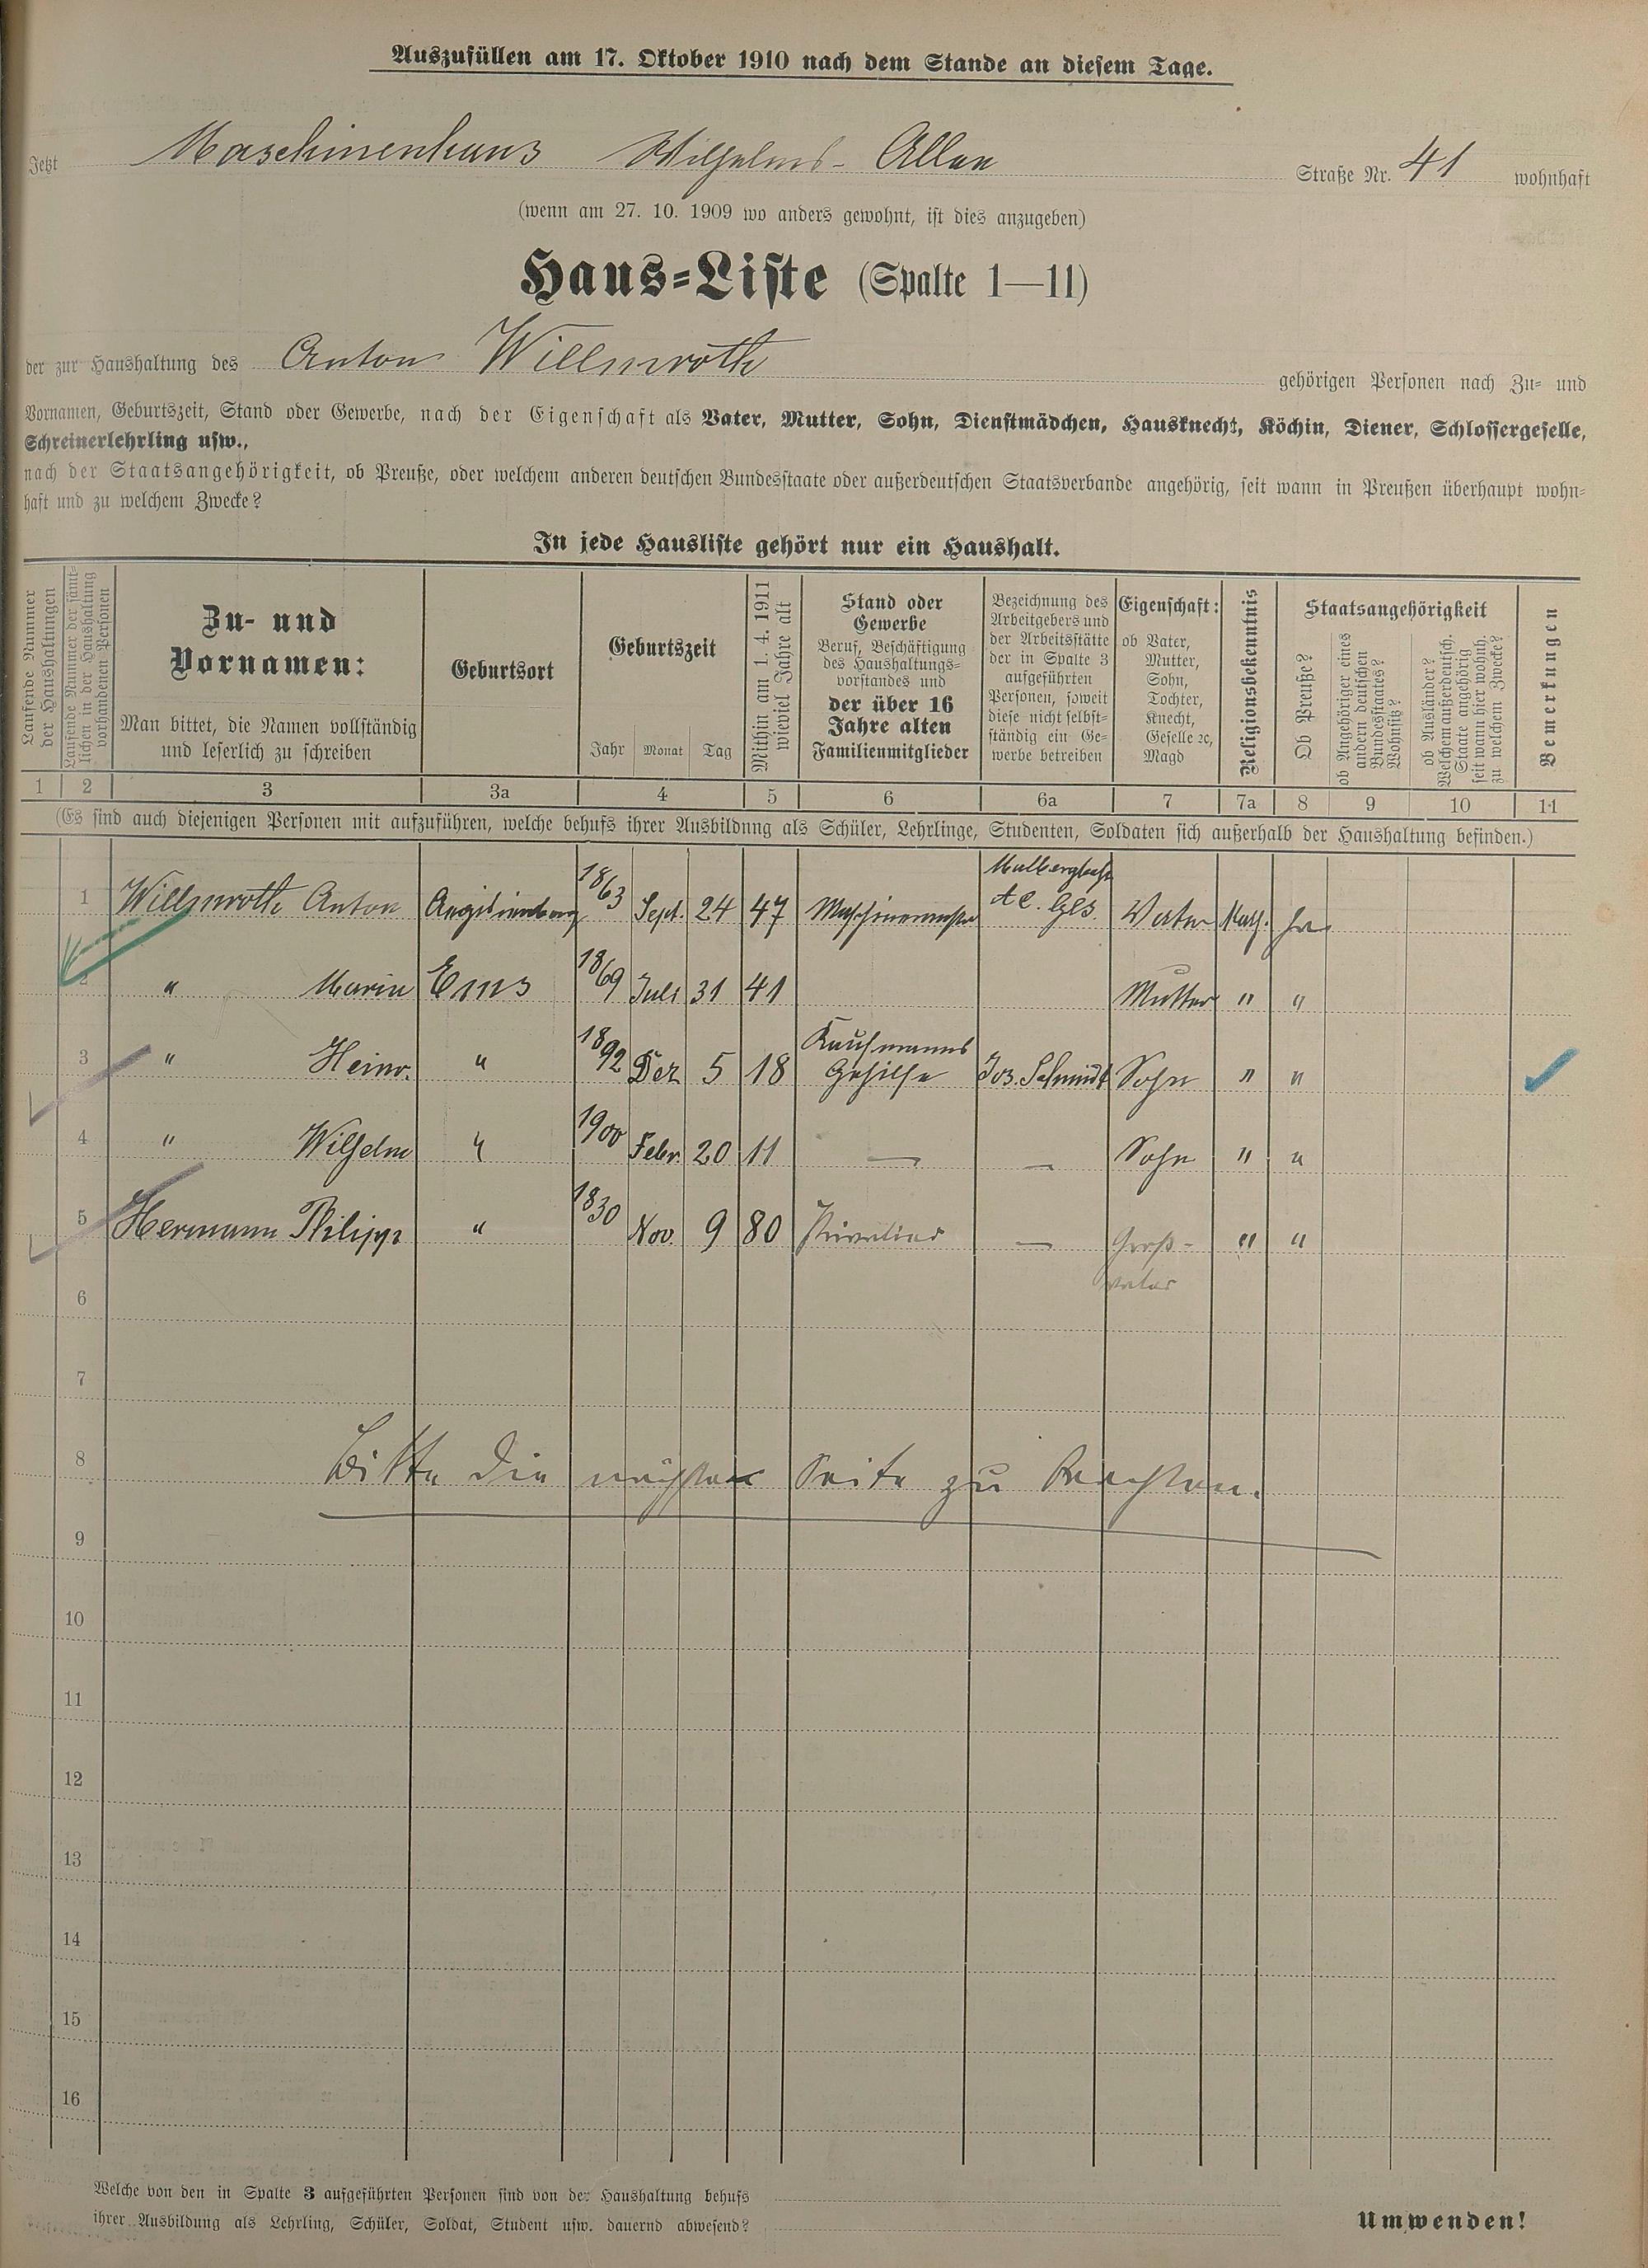 Auszufüllen am 17. Oktober 1910 nach dem Stande an diesem Tage.
Jetzt Maschinenhaus Wilhelms-Allee Straße Nr. 41 wohnhaft
(wenn am 27. 10. 1909 wo anders gewohnt, ist dies anzugeben)
Haus-Liste (Spalte 1—11)
der zur Haushaltung des Anton Willmroth gehörigen Personen nach Zu- und
Vornamen, Geburtszeit, Stand oder Gewerbe, nach der Eigenschaft als Vater, Mutter, Sohn, Dienstmädchen, Hausknecht, Köchin, Diener, Schlossergeselle,
Schreinerlehrling usw.,
nach der Staatsangehörigkeit, ob Preuße, oder welchem anderen deutschen Bundesstaate oder außerdeutschen Staatsverbande angehörig, seit wann in Preußen überhaupt wohn-
haft und zu welchem Zwecke?
In jede Hausliste gehört nur ein Haushalt.
Laufende Nummer
der Haushaltungen
Laufende Nummer der sämt-
lichen in der Haushaltung
vorhandenen Personen
Zu- und
Vornamen:
Man bittet, die Namen vollständig
und leserlich zu schreiben
Geburtsort
Geburtszeit
Jahr Monat Tag
Mithin am 1. 4. 1911
wieviel Jahre alt
Stand oder
Gewerbe
Beruf, Beschäftigung
des Haushaltungs-
vorstandes und
der über 16
Jahre alten
Familienmitglieder
Bezeichnung des
Arbeitgebers und
der Arbeitsstätte
der in Spalte 3
aufgeführten
Personen, soweit
diese nicht selbst-
ständig ein Ge-
werbe betreiben
Eigenschaft:
ob Vater,
Mutter,
Sohn,
Tochter,
Knecht,
Geselle ec,
Magd
Religionsbekenntnis
Staatsangehörigkeit
Ob Preuße?
ob Angehöriger eines
andern deutschen
Bundesstaates?
Wohnsitz?
ob Ausländer?
Welchem außerdeutsch.
Staate angehörig
seit wann hier wohnh.
zu welchem Zwecke?
Bemerkungen
1 2 3 3a 4 5 6 6a 7 7a 8 9 10 11
(Es sind auch diejenigen Personen mit aufzuführen, welche behufs ihrer Ausbildung als Schüler, Lehrlinge, Studenten, Soldaten sich außerhalb der Haushaltung befinden.)
1 Willmroth Anton 1863 Sept. 24 47 Maschinenmstr Malbergbahn Vater Kath. ja
2 " Maria Ems 1869 Juli 31 41 Mutter " "
3 " Heinr. " 1892 Dez 5 18 Kaufmanns Gehilfe Jos. Schmidt Sohn " "
4 " Wilhelm " 1900 Febr. 20 11 — — Sohn " "
5 Hermann Philipp " 1830 Nov. 9 80 Privatier — Groß-
vater " "
6
7
8 Bitte die nächste Seite zu beachten.
9
10
11
12
13
14
15
16
Welche von den in Spalte 3 aufgeführten Personen sind von der Haushaltung behufs
ihrer Ausbildung als Lehrling, Schüler, Soldat, Student usw. dauernd abwesend?
Umwenden!